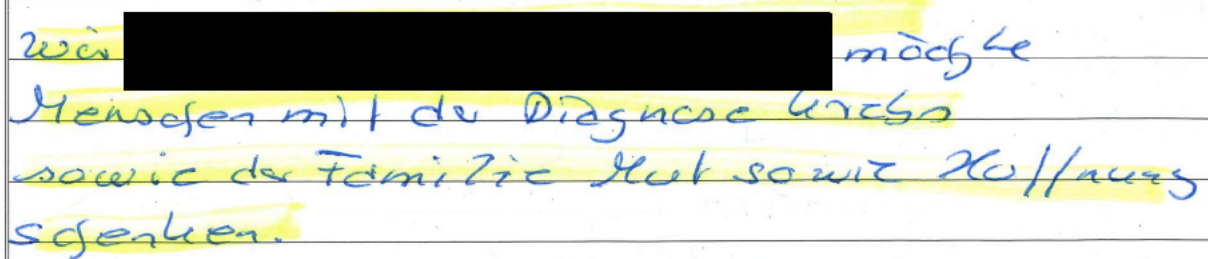 Wir möchte
Menschen mit der Diagnose Krebs
sowie der Familie Mut sowie Hoffnung
schenken.